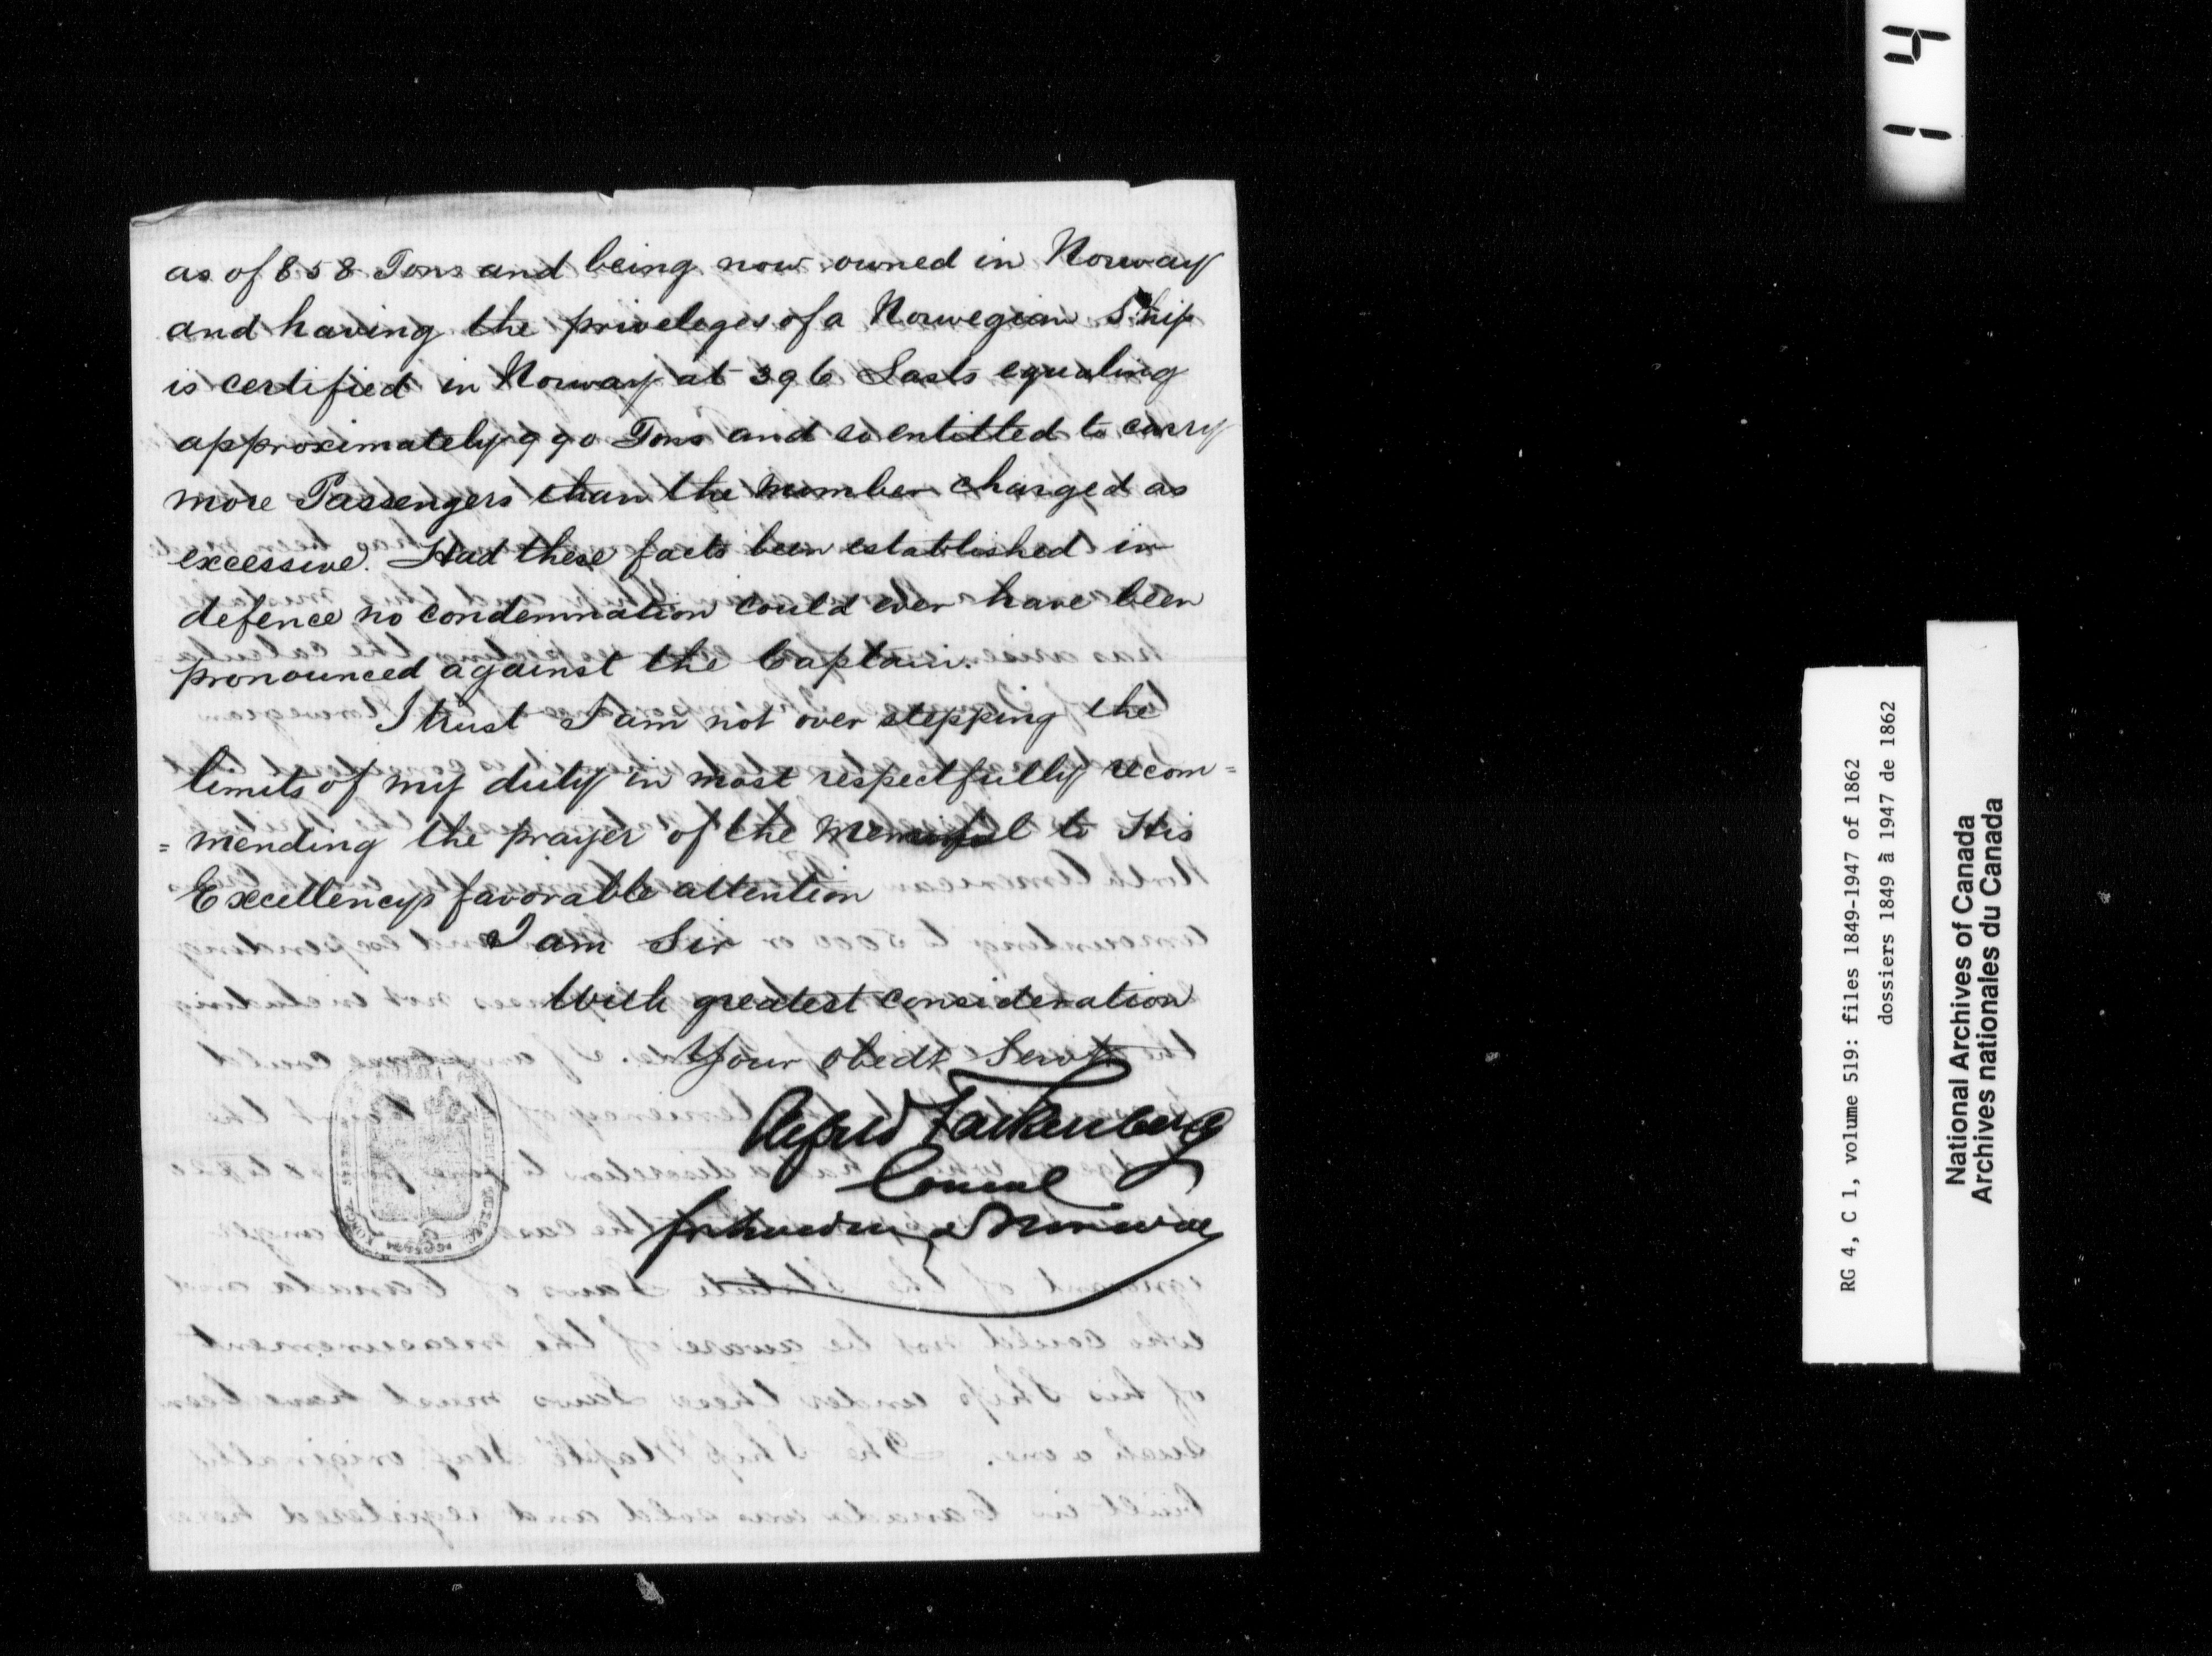 as of 858 Tons and being now owned in Norway
and having the priveleges of a Norwegian Ship
is certified in Norway at 396 Lasts equaling
approximately 990 Tons and so entitled to carry
more Passengers than the number charged as
excessive. Had these facts been established in
defence no condemnation could ever have been
pronounced against the Captain.
I trust I am not over stepping the
limits of my duty in most respectfully recom=
=mending the prayer of the Memorial to His
Excellencys favorable attention
I am Sir
With greatest consideration
Your obedt Servt
Alfred Falkenberg
Consul
for Sweden & Norway
14
RG 4, C 1, volume 519: files 1849-1947 of 1862
dossiers 1849 à 1947 de 1862
National Archives of Canada
Archives nationales du Canada